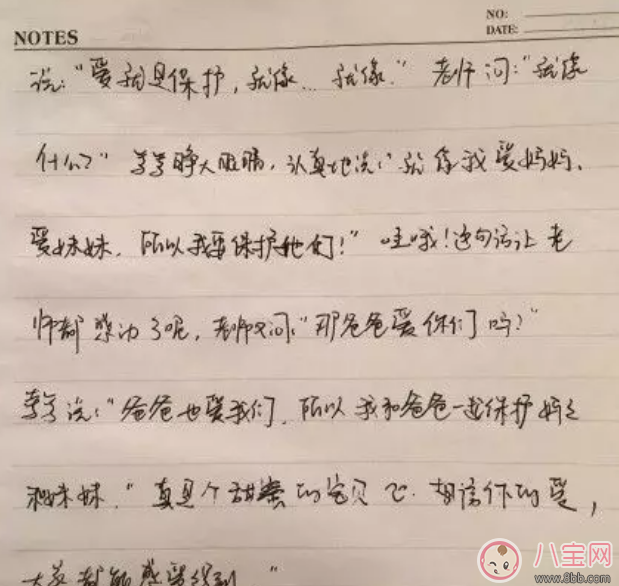 NO:
DATE:
NOTES
说:“爱就是保护,就像... 就像.” 老师问:“就像
什么?” 睁大眼睛,认真地说:“就像我爱妈妈、
爱妹妹,所以我要保护她们!” 哇哦!这句话让老
师都感动了呢,老师又问:“那爸爸爱你们吗?”
说:“爸爸也爱我们,所以我和爸爸一起保护妈妈
和妹妹.” 真是个甜蜜的宝贝 相信你的爱,
大家都能感受得到 ”
八宝网
www.8bb.com